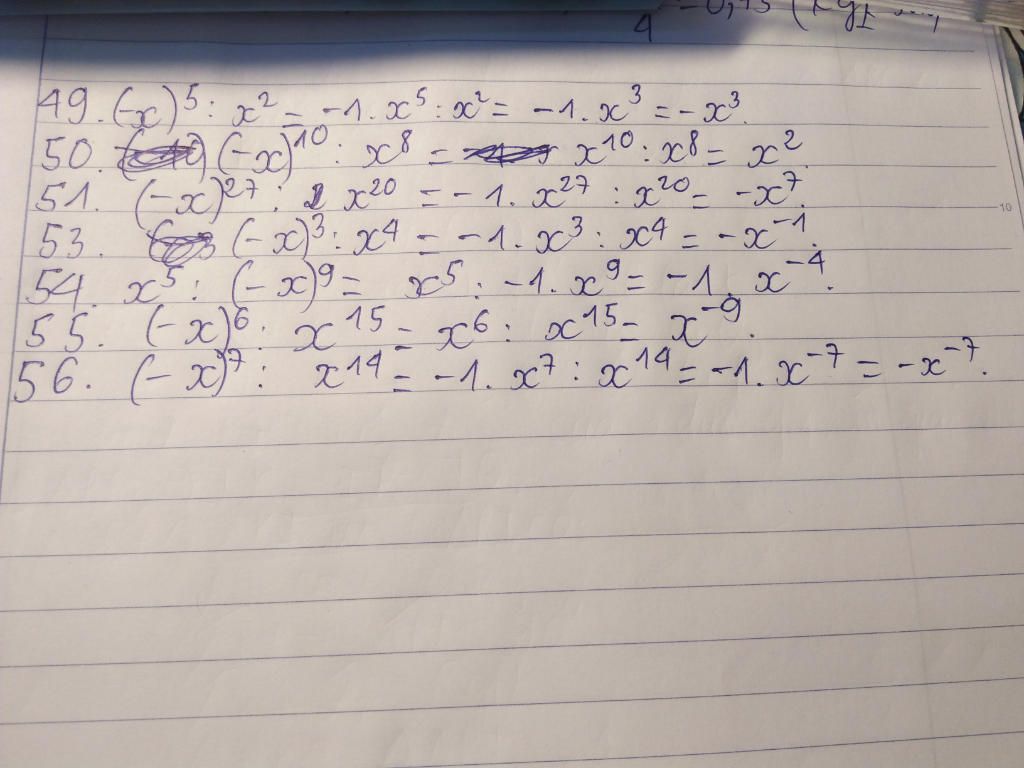 4 0,75
49. (-x)⁵ : x² = -1 . x⁵ : x² = -1 . x³ = -x³.
50. (-x)¹⁰ : x⁸ = x¹⁰ : x⁸ = x².
51. (-x)²⁷ : x²⁰ = -1 . x²⁷ : x²⁰ = -x⁷.
10
53. (-x)³ : x⁴ = -1 . x³ : x⁴ = -x⁻¹.
54. x⁵ : (-x)⁹ = x⁵ : -1 . x⁹ = -1 . x⁻⁴.
55. (-x)⁶ : x¹⁵ = x⁶ : x¹⁵ = x⁻⁹.
56. (-x)⁷ : x¹⁴ = -1 . x⁷ : x¹⁴ = -1 . x⁻⁷ = -x⁻⁷.